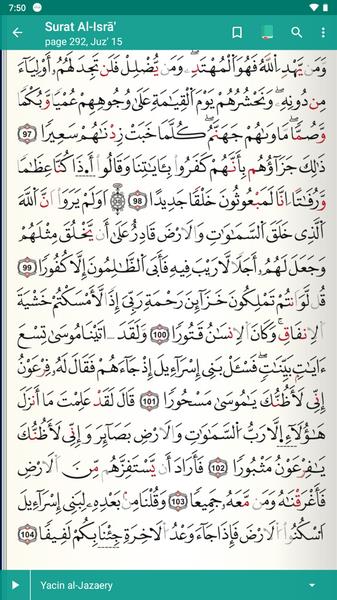 7:50
Surat Al-Isrā'
page 292, Juz' 15
وَمَن يَهْدِ اِ۬للَّهُ فَهُوَ اَ۬لْمُهْتَدِۦۖ وَمَنْ يُّضْلِلْ فَلَن تَجِدَ لَهُمُۥٓ أَوْلِيَآءَ
مِن دُونِهِۦۖ وَنَحْشُرُهُمْ يَوْمَ اَ۬لْقِيَٰمَةِ عَلَىٰ وُجُوهِهِمْ عُمْياٗ وَبُكْماٗ
وَصُمّاٗۖ مَّأْوَىٰهُمْ جَهَنَّمُۖ كُلَّمَا خَبَتْ زِدْنَٰهُمْ سَعِيراٗۖ 97
ذَٰلِكَ جَزَآؤُهُم بِأَنَّهُمْ كَفَرُواْ بِـَٔايَٰتِنَا وَقَالُوٓاْ أَ.ذَا كُنَّا عِظَٰماٗ
وَرُفَٰتاً اِنَّا لَمَبْعُوثُونَ خَلْقاٗ جَدِيداٗۖ 98 ۞ اَوَلَمْ يَرَوَاْ اَنَّ اَ۬للَّهَ
اَ۬لَّذِے خَلَقَ اَ۬لسَّمَٰوَٰتِ وَالَارْضَ قَادِرٌ عَلَىٰٓ أَنْ يَّخْلُقَ مِثْلَهُمْ
وَجَعَلَ لَهُمُۥٓ أَجَلاٗ لَّا رَيْبَ فِيهِ فَأَبَى اَ۬لظَّٰلِمُونَ إِلَّا كُفُوراٗۖ 99
قُل لَّوَ اَنتُمْ تَمْلِكُونَ خَزَآئِنَ رَحْمَةِ رَبِّيَ إِذاٗ لَّأَمْسَكْتُمْ خَشْيَةَ
اَ۬لِانفَاقِۖ وَكَانَ اَ۬لِانسَٰنُ قَتُوراٗۖ 100 وَلَقَدَ اٰتَيْنَا مُوسَىٰ تِسْعَ
ءَايَٰتِۢ بَيِّنَٰتٖۖ فَسْـَٔلْ بَنِےٓ إِسْرَآءِيلَ إِذْ جَآءَهُمْ فَقَالَ لَهُۥ فِرْعَوْنُ
إِنِّے لَأَظُنُّكَ يَٰمُوسَىٰ مَسْحُوراٗۖ 101 قَالَ لَقَدْ عَلِمْتَ مَآ أَنزَلَ
هَٰٓؤُلَآءِ اِلَّا رَبُّ اُ۬لسَّمَٰوَٰتِ وَالَارْضِ بَصَآئِرَ وَإِنِّے لَأَظُنُّكَ
يَٰفِرْعَوْنُ مَثْبُوراٗۖ 102 فَأَرَادَ أَنْ يَّسْتَفِزَّهُم مِّنَ اَ۬لَارْضِ
فَأَغْرَقْنَٰهُ وَمَن مَّعَهُۥ جَمِيعاٗۖ 103 وَقُلْنَا مِنۢ بَعْدِهِۦ لِبَنِےٓ إِسْرَآءِيلَ
اَ۟سْكُنُواْ اُ۬لَارْضَ فَإِذَا جَآءَ وَعْدُ اُ۬لَاخِرَةِ جِئْنَا بِكُمْ لَفِيفاٗۖ 104
Yacin al-Jazaery